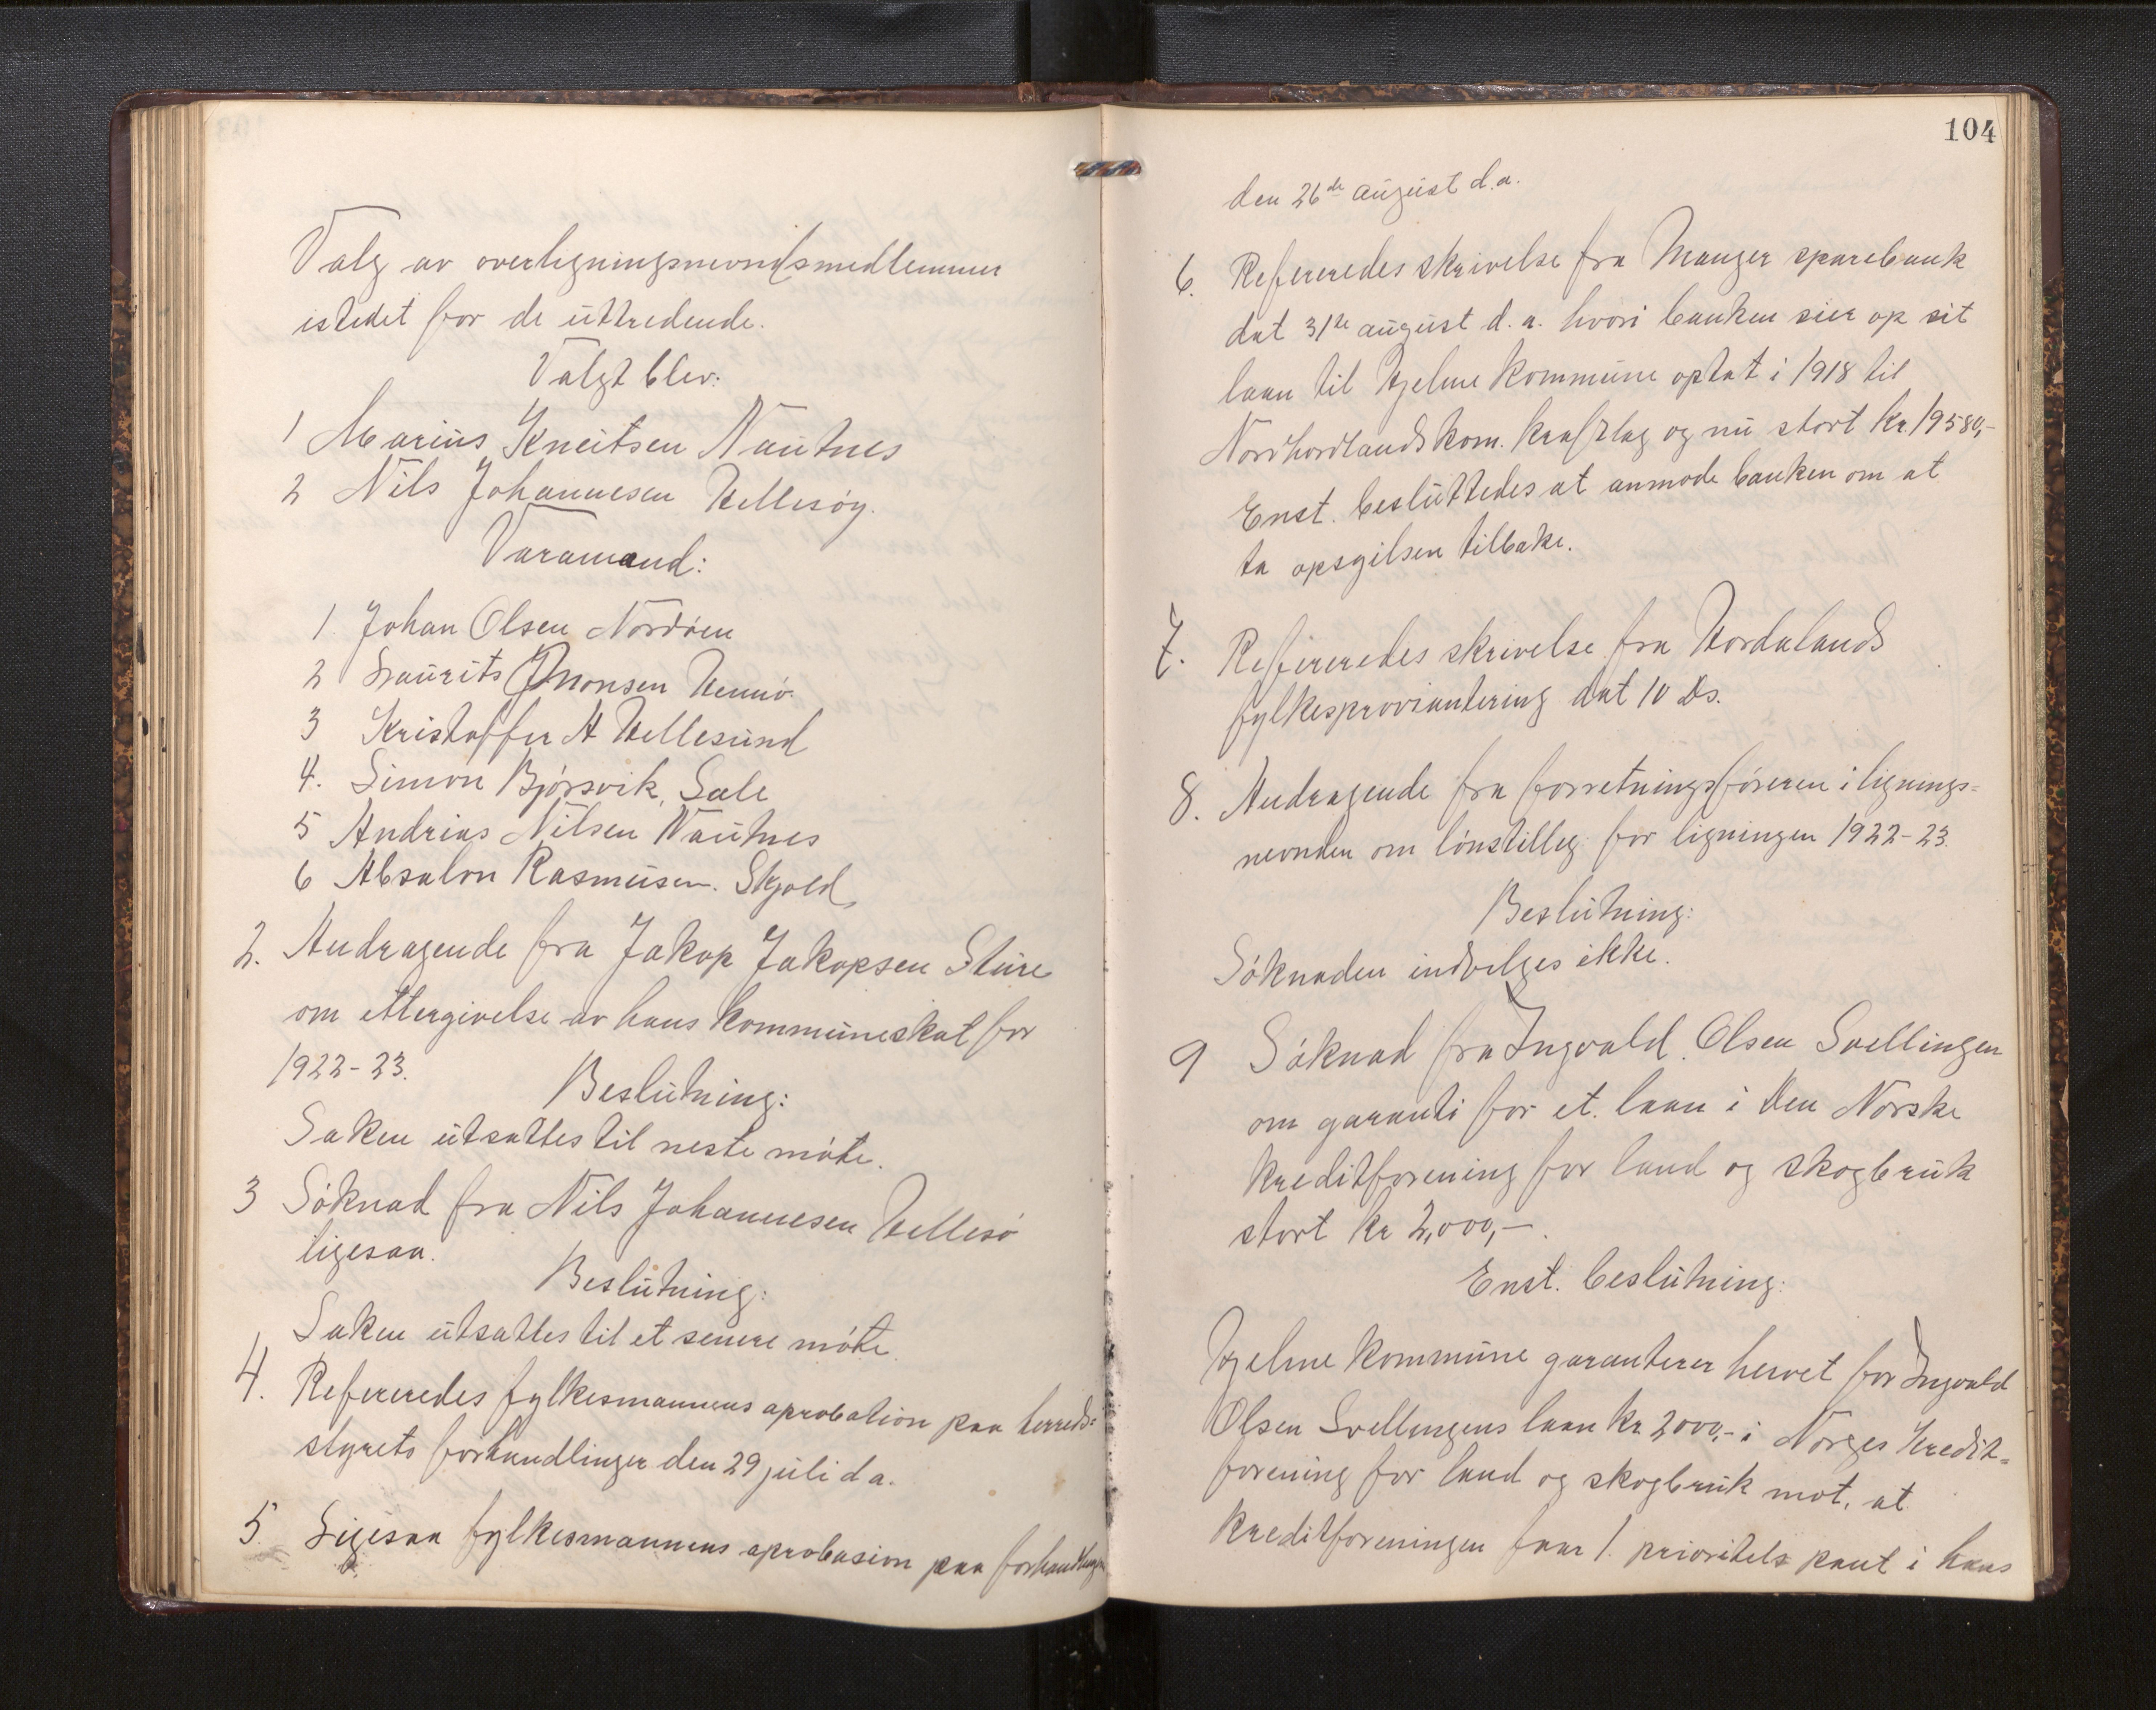 Valg av overligningsnevndsmedlemmer
istedet for de uttredende.
Valgt blev:
1 Marius Kneutsen Nautnes
2 Nils Johannesen Hellesöy.
Varamænd:
1. Johan Olsen Nordöen
2 Laurits Monsen Hernö.
3 Kristoffer A Hellesund
4. Simon Bjørsvik, Sæle
5 Andrias Nilsen Nautnes
6 Absalon Rasmusen. Skjold
2. Andragende fra Jakop Jakopsen Sture
om ettergivelse av hans kommuneskat for
1922-23.
Beslutning:
Saken utsattes til neste möte.
3 Söknad fra Nils Johannesen Hellesö
ligesaa.
Beslutning:
Saken utsattes til et senere möte.
4. Refereredes fylkesmannens aprobation paa herreds=
styrets forhandlinger den 29 juli d a.
5. Ligesaa fylkesmannens aprobasion paa forhandlinger
104
den 26de august d.a.
6. Refereredes skrivelse fra Manger sparebank
dat 31te august d. a. hvori banken sier op sit
laan til Hjelme kommune optat i 1918 til
Nordhordlands kom. kraftlag og nu stort kr. 19580,-
Enst. besluttedes at anmode banken om at
ta opsgilsen tilbake.
7. Refereredes skrivelse fra Hordalands
fylkesproviantering dat 10 ds.
8. Andragende fra forretningsföreren i lignings=
nevnden om lönstilleg for ligningen 1922-23.
Beslutning:
Söknaden indvilges ikke.
9 Söknad fra Ingvald Olsen Svellingen
om garanti for et laan i Den Norske
kreditforening for land og skogbruk
stort kr 2,000,-.
Enst. beslutning:
Hjelme kommune garanterer hervet for Ingvald
Olsen Svellingens laan kr. 2000,- i Norges Kredit=
forening for land og skogbruk mot, at
kreditforeningen faar 1. prioritets pant i hans